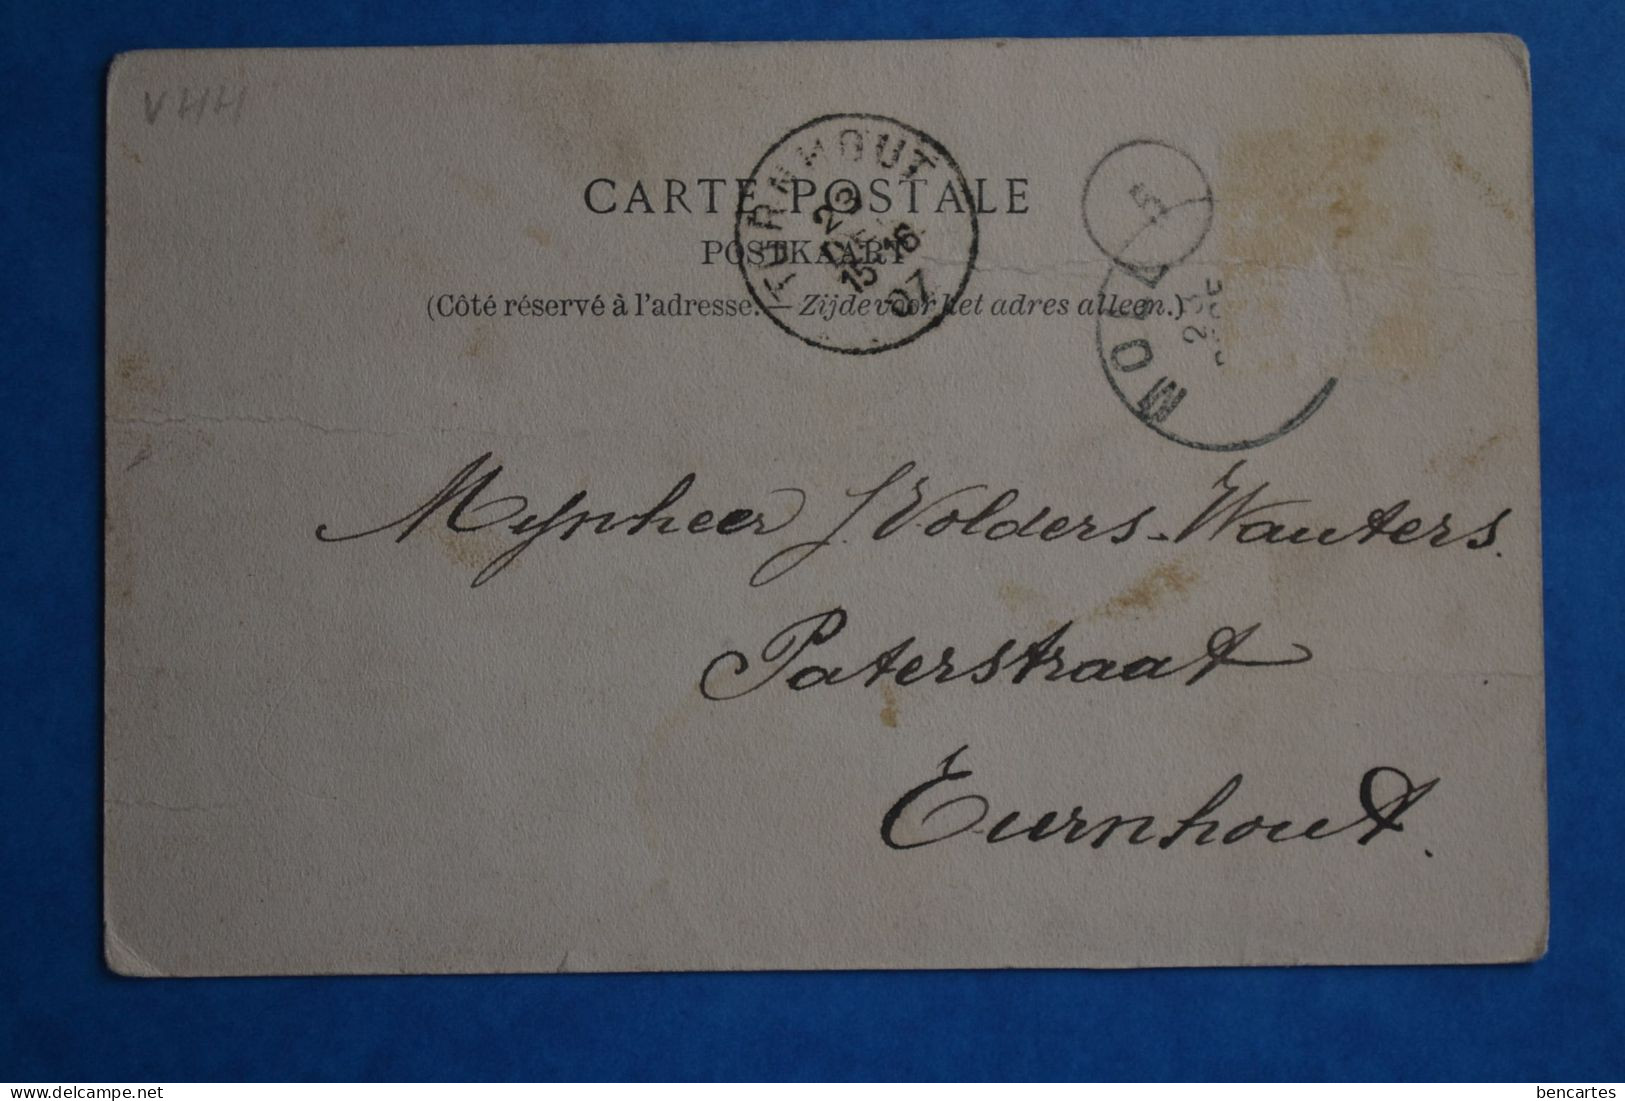 V44
CARTE POSTALE
POSTKAART
(Côté réservé à l'adresse. — Zijde voor het adres alleen.)
TURNHOUT
23
15-16
07
5
MOLL
23
Mynheer J. Volders-Wauters.
Paterstraat
Turnhout.
bencartes